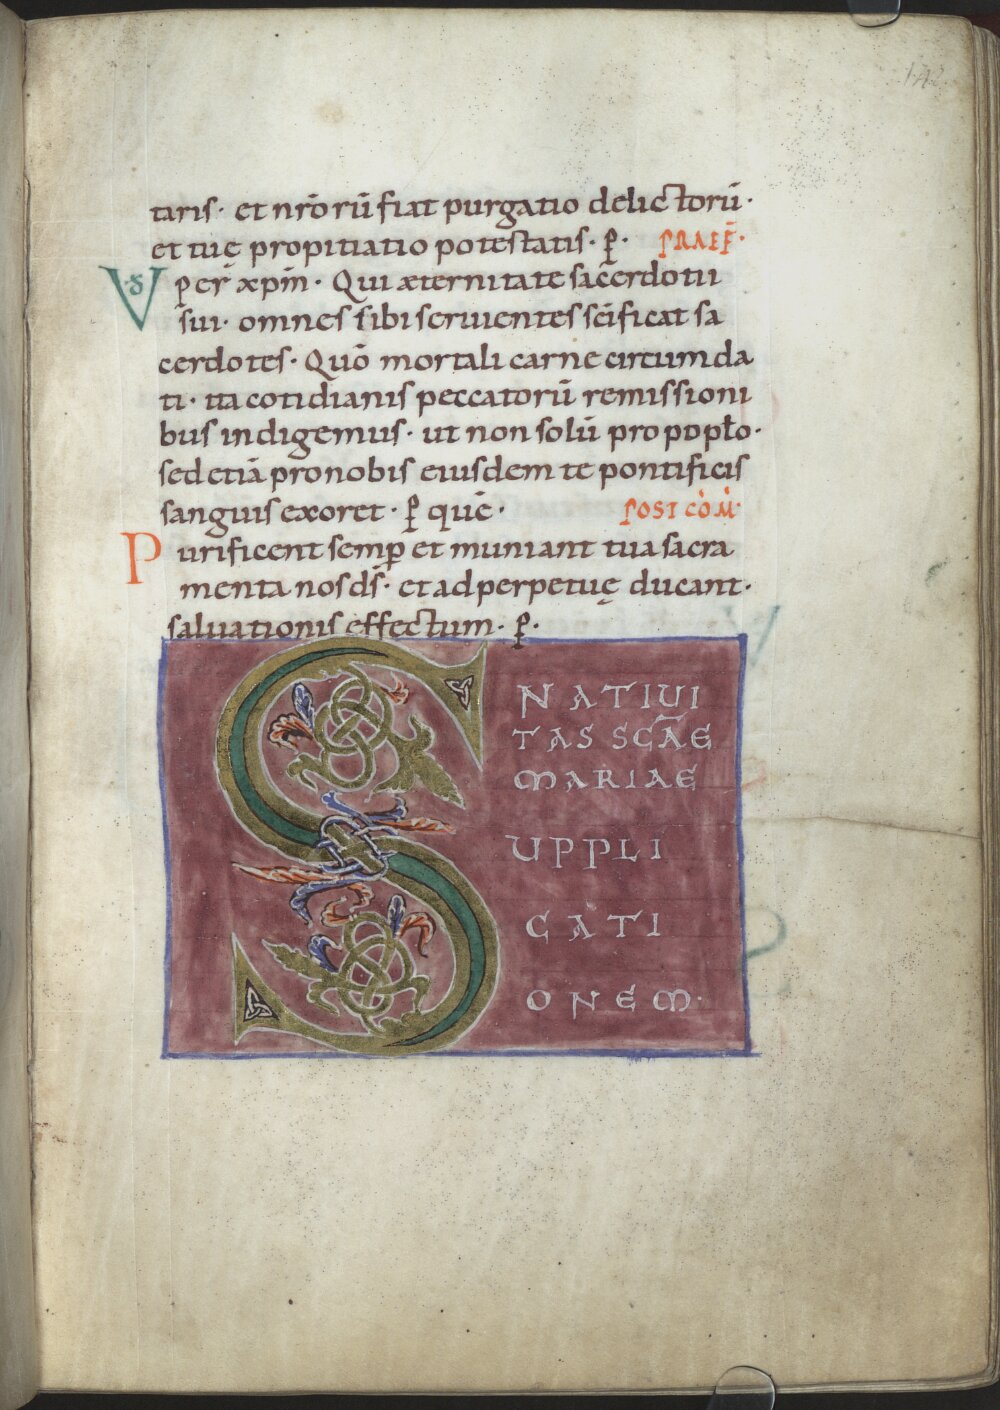 142
taris· et nr̄orū fiat purgatio delictorū·
et tuę propitiatio potestatis· ꝑ· PRAEF̄·
VD̄ ꝑ er̄ xp̄m̄· Qui æternitate sacerdotii
sui· omnes sibi seruientes sc̄ificat sa
cerdotes· Quō mortali carne circumda
ti· ita cotidianis peccatorū remissioni
bus indigemus· ut non solū pro popło·
sed etiā pro nobis eiusdem te pontificis
sanguis exoret· ꝑ quē· POST CŌM̄·
Purificent semꝑ et muniant tua sacra
menta nos ds̄· et ad perpetuę ducant·
saluationis effectum· ꝑ·
NATIUI
TAS SC̄AE
MARIAE
SUPPLI
CATI
ONEM·